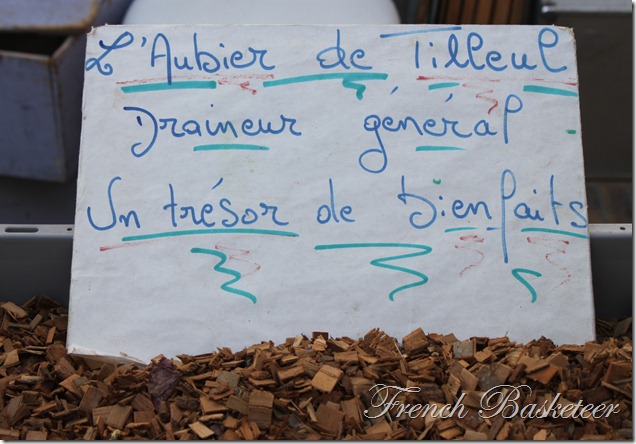 L'Aubier de Tilleul
Draineur général
Un trésor de bienfaits
French Basketeer